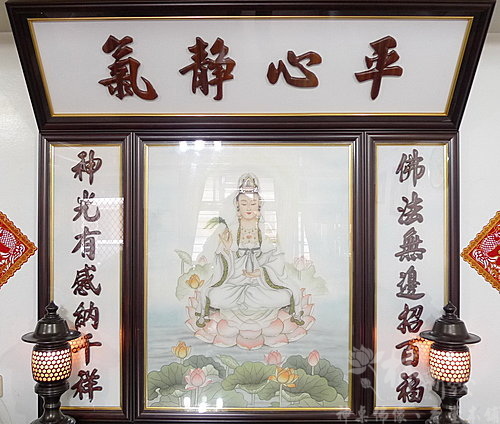 平心靜氣
佛法無邊招百福
神光有感納千祥